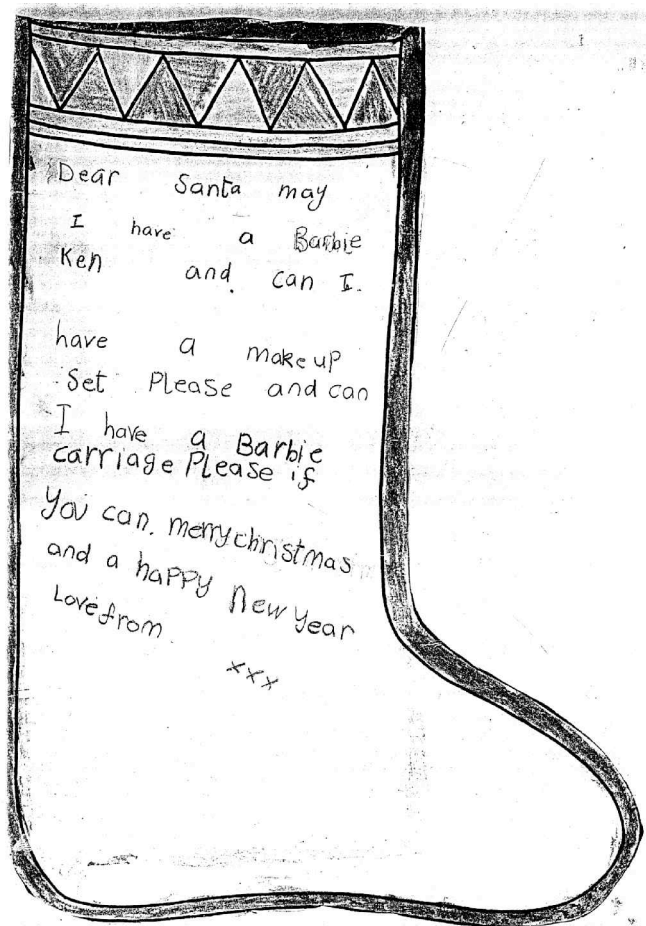 Dear Santa may
I have a Barbie
Ken and. can I.
have a make up
Set Please and can
I have a Barbie
carriage Please if
You can. merry christmas
and a happy New Year
Love from
xxx